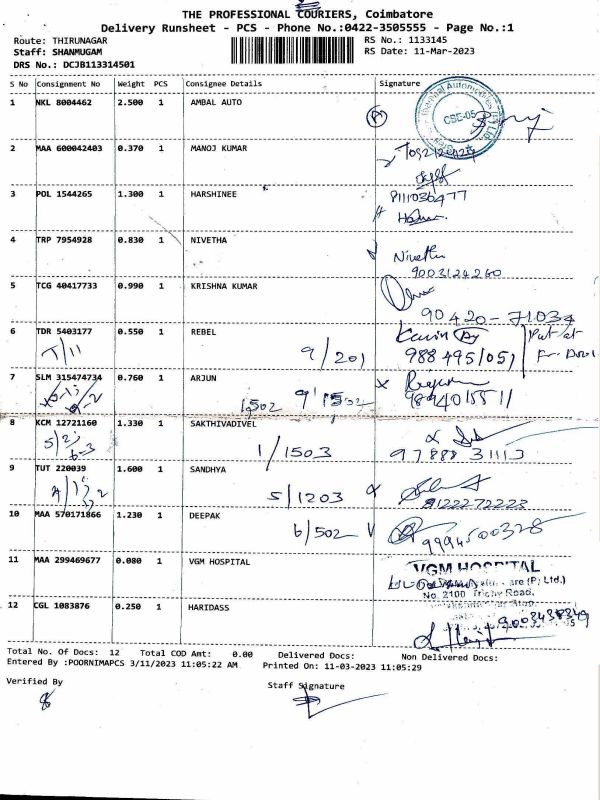 THE PROFESSIONAL COURIERS, Coimbatore
Delivery Runsheet - PCS - Phone No.:0422-3505555 - Page No.:1
Route: THIRUNAGAR RS No.: 1133145
Staff: SHANMUGAM RS Date: 11-Mar-2023
DRS No.: DCJB113314501
S No Consignment No Weight PCS Consignee Details Signature
1 NKL 8004462 2.500 1 AMBAL AUTO
CBE-05
2 MAA 600042403 0.370 1 MANOJ KUMAR
3 POL 1544265 1.300 1 HARSHINEE
4 TRP 7954928 0.830 1 NIVETHA
Nivetha
9003124260
5 TCG 40417733 0.990 1 KRISHNA KUMAR
90420-71034
6 TDR 5403177 0.550 1 REBEL
T/11 9/201 988495/051
7 SLM 315474734 0.760 1 ARJUN
1502
8 KCM 12721160 1.330 1 SAKTHIVADIVEL
1/1503 97888 31113
9 TUT 220039 1.600 1 SANDHYA
5/1203 9122272223
10 MAA 570171866 1.230 1 DEEPAK
6/502 9994500328
11 MAA 299469677 0.080 1 VGM HOSPITAL
VGM HOSPITAL
(P) Ltd.)
No. 2100 Trichy Road,
12 CGL 1083876 0.250 1 HARIDASS
Total No. Of Docs: 12 Total COD Amt: 0.00 Delivered Docs: Non Delivered Docs:
Entered By :POORNIMAPCS 3/11/2023 11:05:22 AM Printed On: 11-03-2023 11:05:29
Verified By Staff Signature